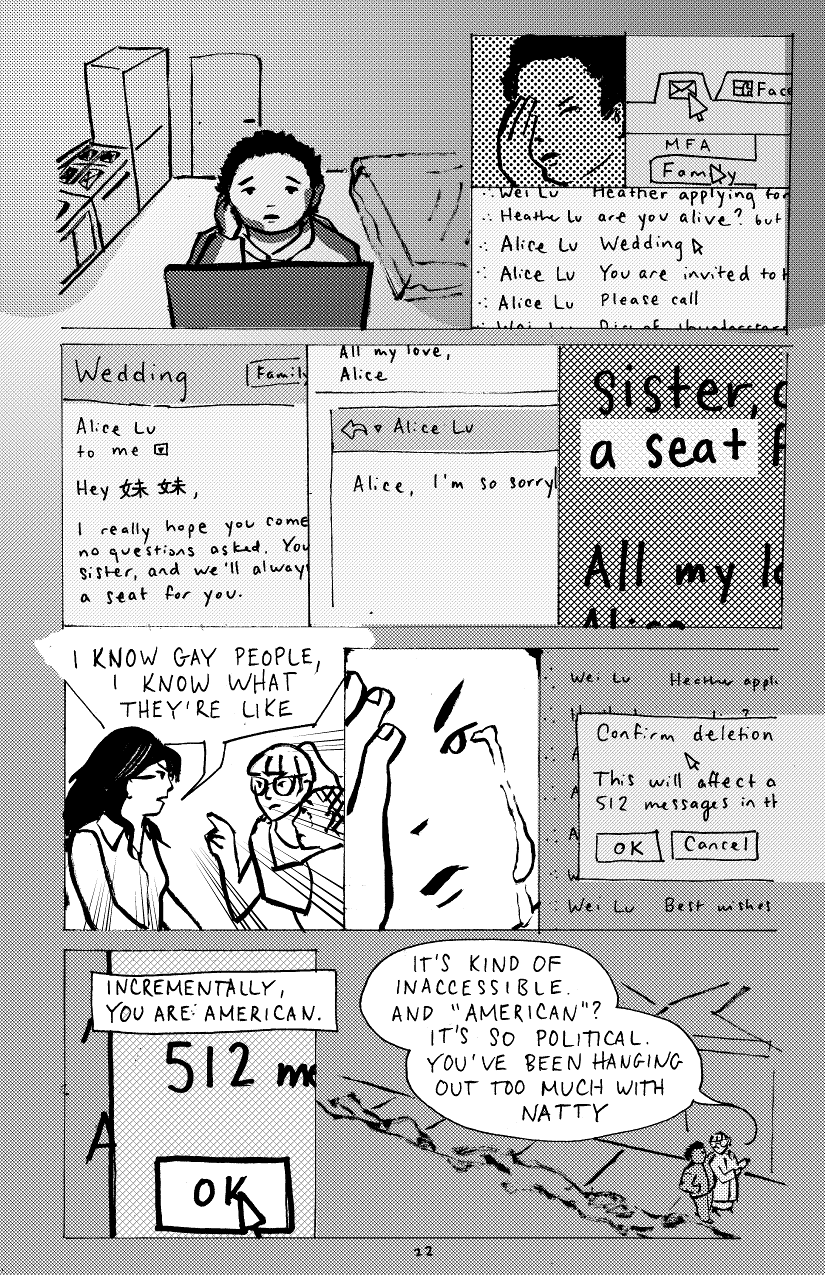 Fac
MFA
Family
Wei Lu Heather applying for
Heather Lu are you alive? but
Alice Lu Wedding
Alice Lu You are invited to
Alice Lu Please call
Wei Lu
Wedding
Family
Alice Lu
to me
Hey 妹妹,
I really hope you come
no questions asked. You
sister, and we'll alway
a seat for you.
All my love,
Alice
Alice Lu
Alice, I'm so sorry
Sister,
a seat f
All my lo
Alice
I KNOW GAY PEOPLE,
I KNOW WHAT
THEY'RE LIKE
Wei Lu Heather appli
Confirm deletion
This will affect a
512 messages in th
OK Cancel
Wei Lu Best wishes
INCREMENTALLY,
YOU ARE AMERICAN.
512 me
A
OK
IT'S KIND OF
INACCESSIBLE.
AND "AMERICAN"?
IT'S SO POLITICAL.
YOU'VE BEEN HANGING
OUT TOO MUCH WITH
NATTY
22